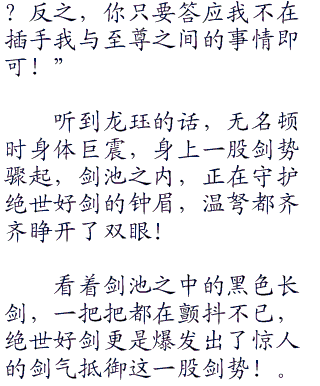 ？反之，你只要答应我不在
插手我与至尊之间的事情即
可！”
听到龙珏的话，无名顿
时身体巨震，身上一股剑势
骤起，剑池之内，正在守护
绝世好剑的钟眉，温弩都齐
齐睁开了双眼！
看着剑池之中的黑色长
剑，一把把都在颤抖不已，
绝世好剑更是爆发出了惊人
的剑气抵御这一股剑势！。